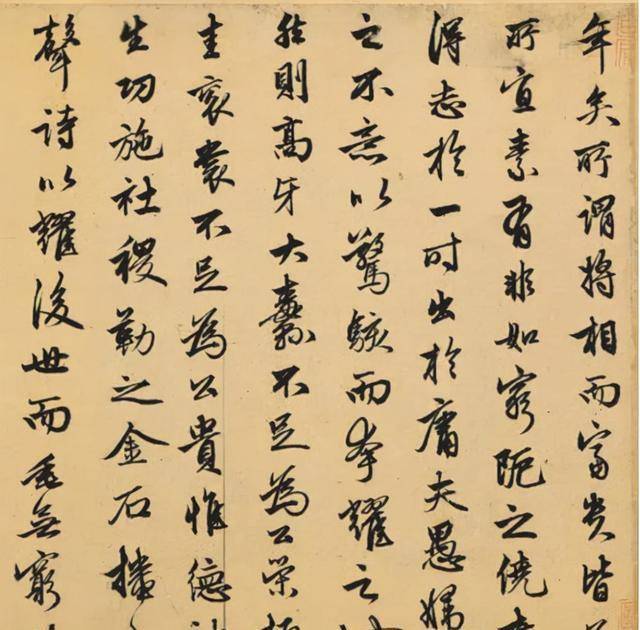 年矣所謂將相而富貴皆
所宜素有非如窮阨之僥
得志於一時出於庸夫愚婦
之不意以驚駭而夸耀之
然則高牙大纛不足為公榮
圭袞裳不足為公貴惟德
生功施社稷勒之金石播
聲詩以耀後世而垂無窮